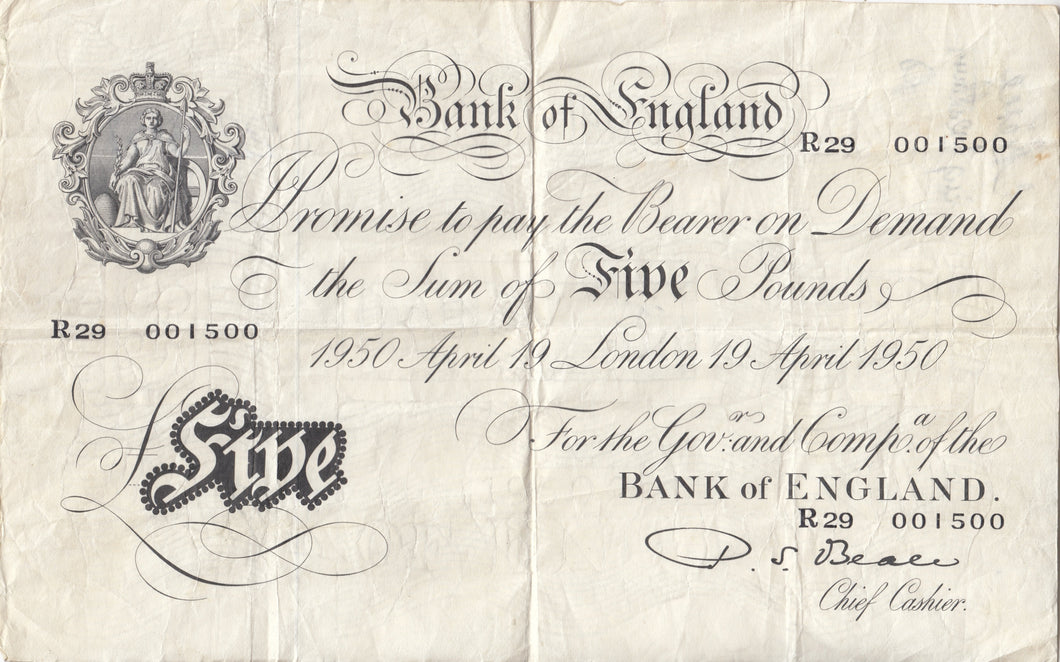 Bank of England
R29 001500
I Promise to pay the Bearer on Demand
the Sum of Five Pounds
R29 001500
1950 April 19 London 19 April 1950
£Five
For the Gov.r and Comp.a of the
BANK of ENGLAND.
R29 001500
P. S. Beale
Chief Cashier.